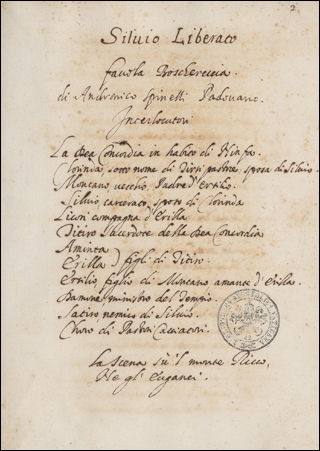 2
Siluio Liberato
fauola Boschereccia.
di Andronico Spinelli Padouano.
Interlocutori
La Dea Concordia in habito di Ninfa.
Clorinda, sotto nome di Tirsi pastore, sposa di Siluio.
Montano, vecchio, Padre d'Ertilio.
Siluio, carcerato, sposo di Clorinda
Licori compagna d'Erilla
Titiro Sacerdote della Dea Concordia
Aminta
Erilla } figli di Titiro.
Ertilio, figlio di Montano amante d'Erilla.
Damone, ministro del Tempio.
Satiro nemico di Siluio.
Choro di Pastori Cacciatori.
La Scena sù 'l monte Ricco,
gl' Euganei.